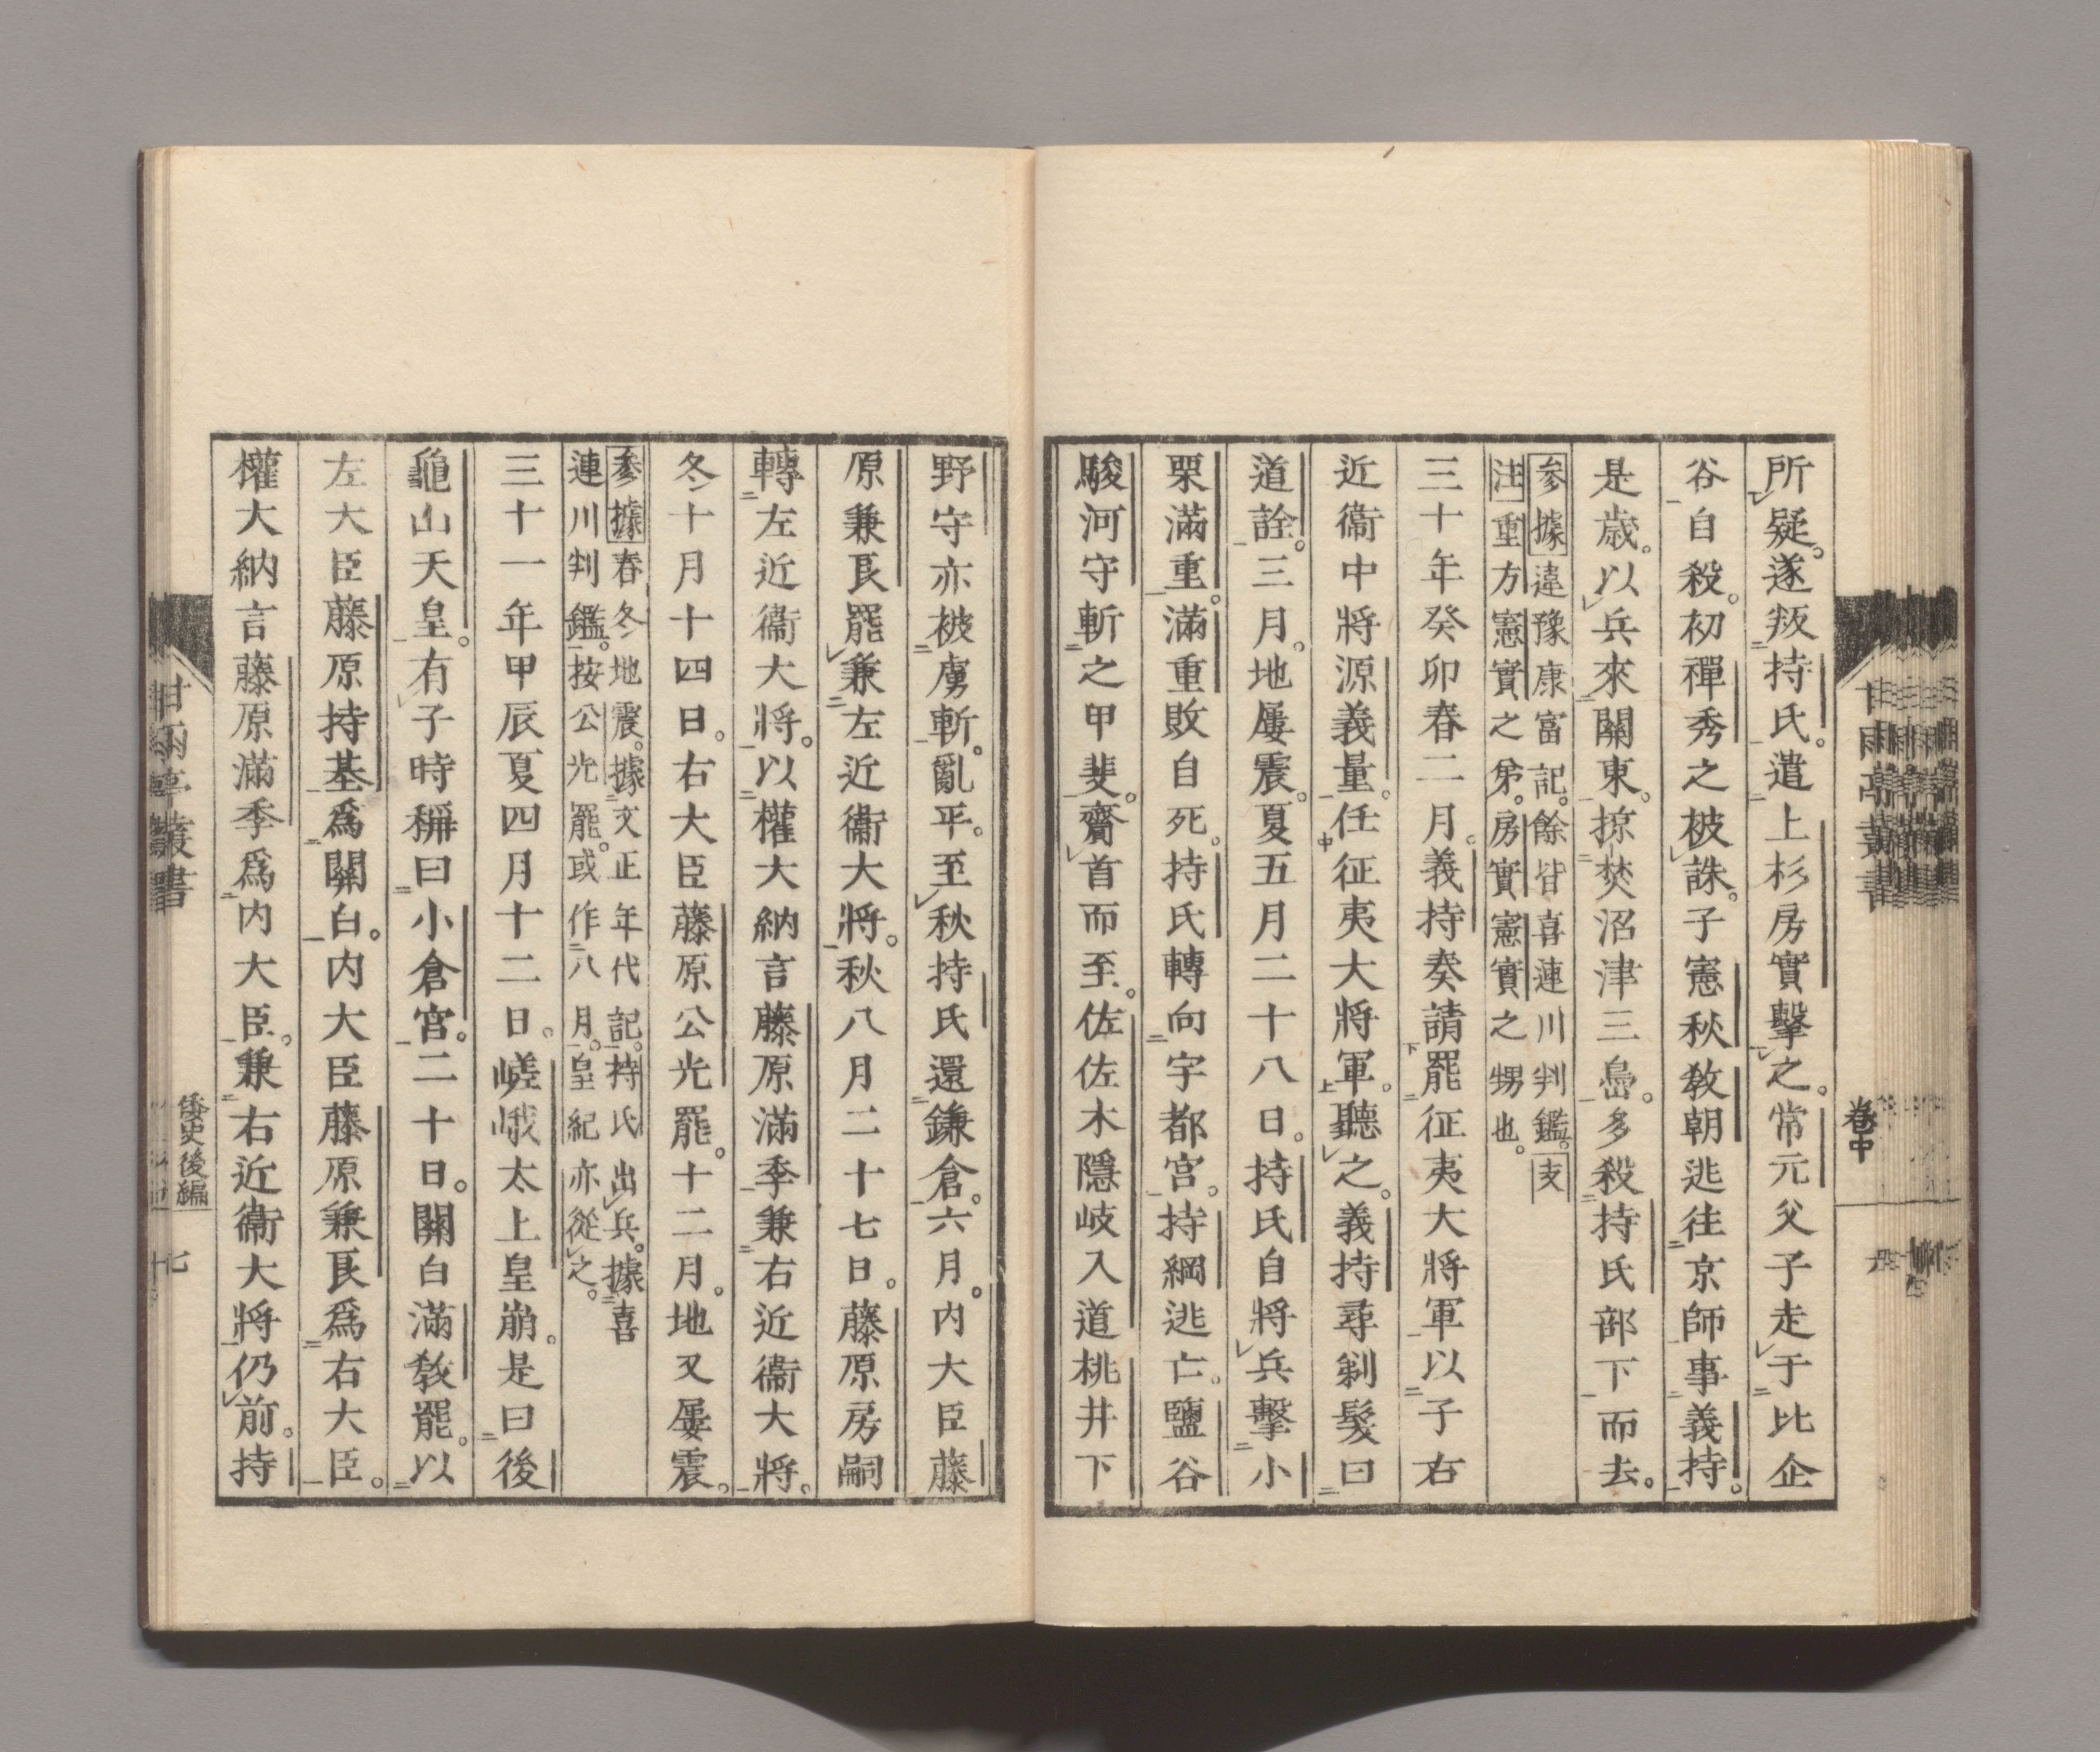 所疑。遂叛持氏。遣上杉房實擊之。常元父子走于比企
谷自殺。初禪秀之被誅。子憲秋敎朝逃往京師事義持。
是歲。以兵來關東。掠焚沼津三島。多殺持氏部下而去。
參據違豫康富記。餘皆喜連川判鑑。支
注重方憲實之弟。房實憲實之甥也。
三十年癸卯春二月。義持奏請罷征夷大將軍以子右
近衞中將源義量。任征夷大將軍。聽之。義持尋剃髮曰
道詮。三月。地屢震。夏五月二十八日。持氏自將兵擊小
栗滿重。滿重敗自死。持氏轉向宇都宮。持綱逃亡。鹽谷
駿河守斬之甲斐。齎首而至。佐佐木隱岐入道桃井下
卷中
野守亦被虜斬。亂平。至秋持氏還鎌倉。六月。內大臣藤
原兼良罷兼左近衞大將。秋八月二十七日。藤原房嗣
轉左近衞大將。以權大納言藤原滿季兼右近衞大將。
冬十月十四日。右大臣藤原公光罷。十二月。地又屢震。
參據春冬地震。據文正年代記。持氏出兵。據喜
連川判鑑。按公光罷。或作八月。皇紀亦從之。
三十一年甲辰夏四月十二日。嵯峨太上皇崩。是曰後
龜山天皇。有子時稱曰小倉宮。二十日。關白滿敎罷。以
左大臣藤原持基爲關白。內大臣藤原兼良爲右大臣。
權大納言藤原滿季爲內大臣。兼右近衞大將仍前。持
甘雨亭叢書
倭史後編
十七